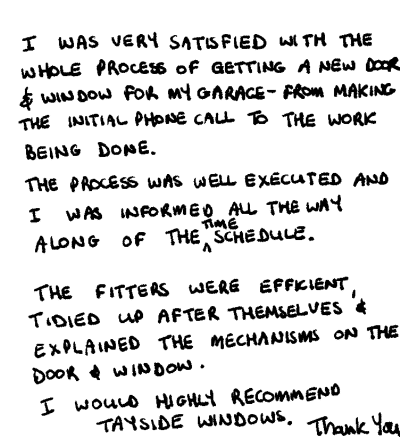 I WAS VERY SATISFIED WITH THE
WHOLE PROCESS OF GETTING A NEW DOOR
& WINDOW FOR MY GARAGE - FROM MAKING
THE INITIAL PHONE CALL TO THE WORK
BEING DONE.
THE PROCESS WAS WELL EXECUTED AND
I WAS INFORMED ALL THE WAY
ALONG OF THE TIME SCHEDULE.
THE FITTERS WERE EFFICIENT,
TIDIED UP AFTER THEMSELVES &
EXPLAINED THE MECHANISMS ON THE
DOOR & WINDOW.
I WOULD HIGHLY RECOMMEND
TAYSIDE WINDOWS. Thank You